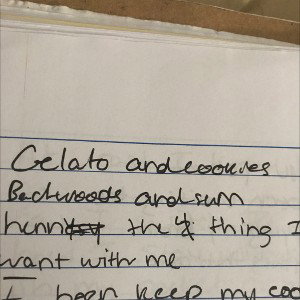 Gelato and cookies
Backwoods and sum
henn the 4 thing I
want with me
I been keep my coo